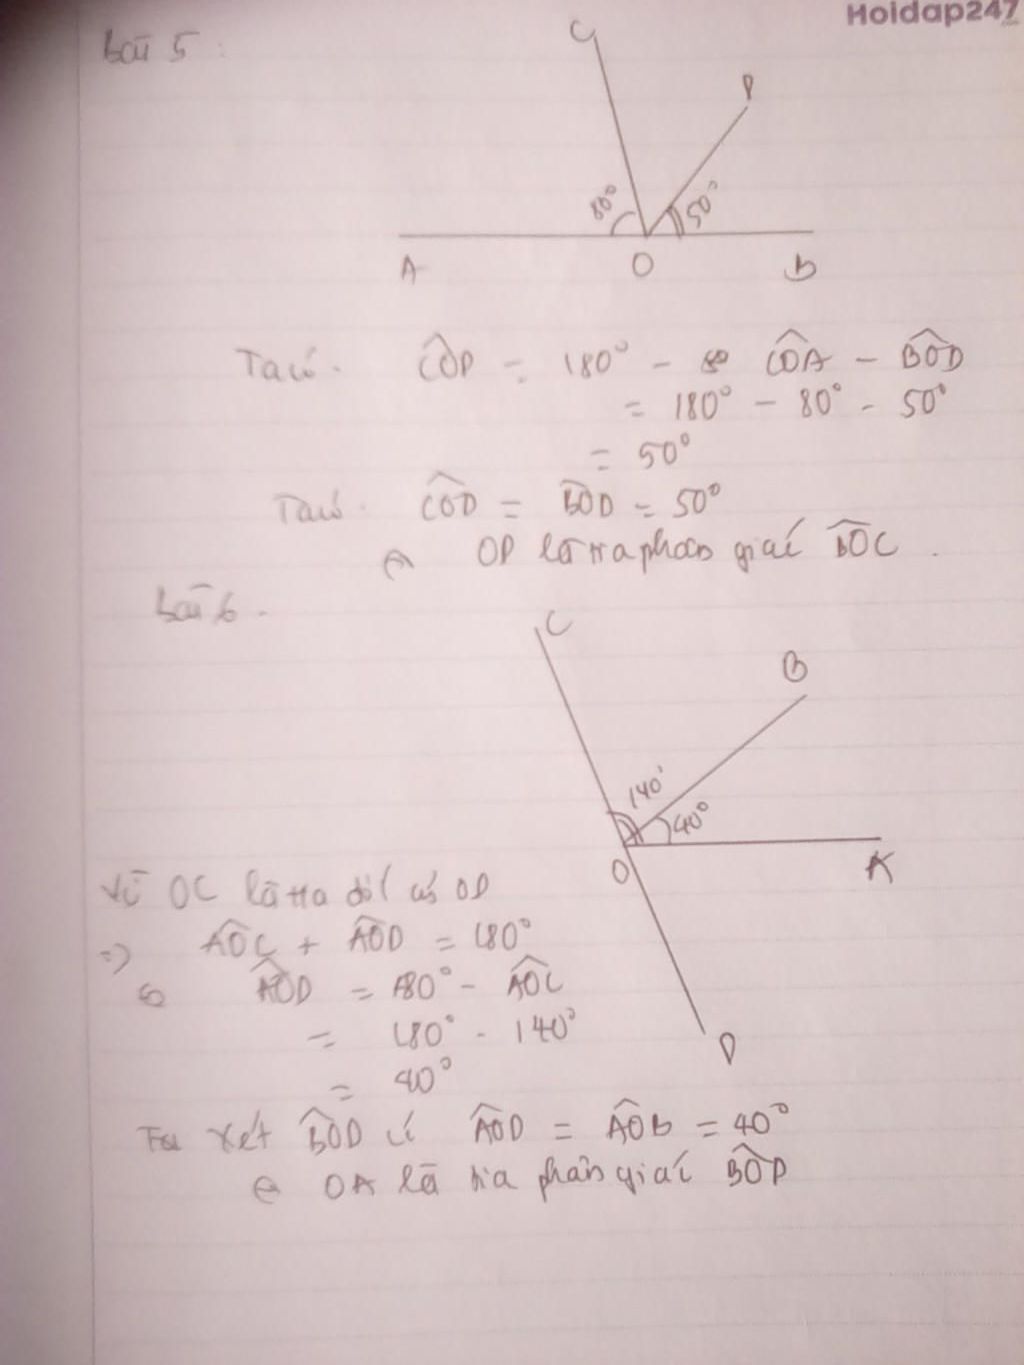 Hoidap247
Bài 5 :
C
D
80°
50°
A
O
B
Ta có. CÔD = 180° - CÔA - BÔD
= 180° - 80° - 50°
= 50°
Ta có. CÔD = BÔD = 50°
OD là tia phân giác BÔC .
Bài 6 .
C
B
140°
40°
O
A
Vì OC là tia đối của OD
=> AÔC + AÔD = 180°
AÔD = 180° - AÔC
= 180° - 140°
= 40°
D
Ta xét BÔD có AÔD = AÔB = 40°
OA là tia phân giác BÔD